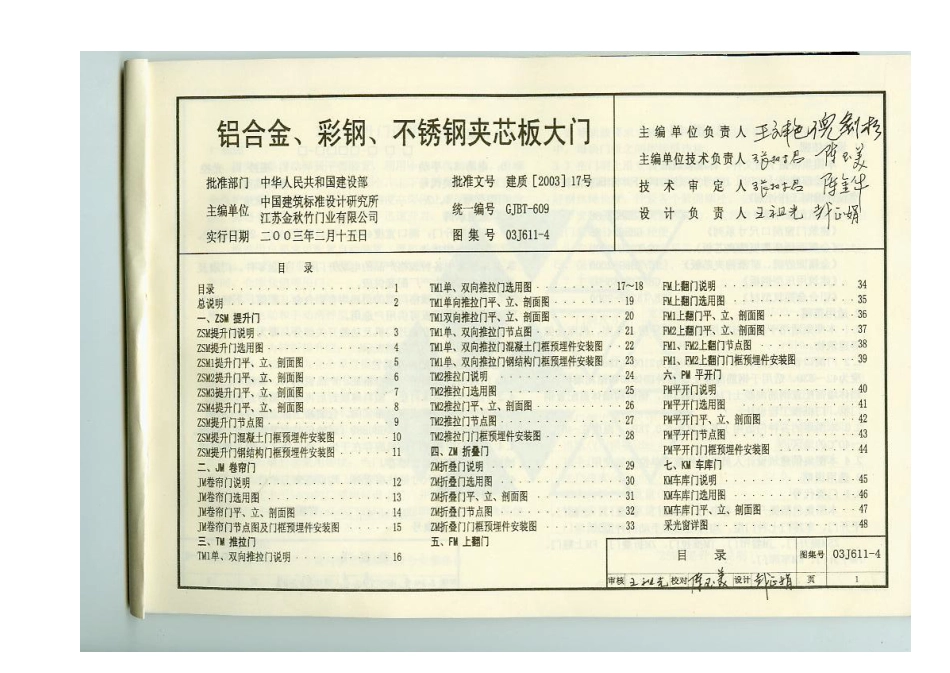 铝合金、彩钢、不锈钢夹芯板大门
批准部门 中华人民共和国建设部 批准文号 建质［2003］17号
主编单位 中国建筑标准设计研究所
江苏金秋竹门业有限公司 统一编号 GJBT-609
实行日期 二〇〇三年二月十五日 图集号 03J611-4
主编单位负责人
主编单位技术负责人
技术审定人
设计负责人 王祖光
目录
目录 1
总说明 2
一、ZSM 提升门
ZSM提升门说明 3
ZSM提升门选用图 4
ZSM1提升门平、立、剖面图 5
ZSM2提升门平、立、剖面图 6
ZSM3提升门平、立、剖面图 7
ZSM4提升门平、立、剖面图 8
ZSM提升门节点图 9
ZSM提升门混凝土门框预埋件安装图 10
ZSM提升门钢结构门框预埋件安装图 11
二、JM 卷帘门
JM卷帘门说明 12
JM卷帘门选用图 13
JM卷帘门平、立、剖面图 14
JM卷帘门节点图及门框预埋件安装图 15
三、TM 推拉门
TM1单、双向推拉门说明 16
TM1单、双向推拉门选用图 17～18
TM1单向推拉门平、立、剖面图 19
TM1双向推拉门平、立、剖面图 20
TM1单、双向推拉门节点图 21
TM1单、双向推拉门混凝土门框预埋件安装图 22
TM1单、双向推拉门钢结构门框预埋件安装图 23
TM2推拉门说明 24
TM2推拉门选用图 25
TM2推拉门平、立、剖面图 26
TM2推拉门节点图 27
TM2推拉门门框预埋件安装图 28
四、ZM 折叠门
ZM折叠门说明 29
ZM折叠门选用图 30
ZM折叠门平、立、剖面图 31
ZM折叠门节点图 32
ZM折叠门门框预埋件安装图 33
五、FM 上翻门
FM上翻门说明 34
FM上翻门选用图 35
FM1上翻门平、立、剖面图 36
FM2上翻门平、立、剖面图 37
FM1、FM2上翻门节点图 38
FM1、FM2上翻门门框预埋件安装图 39
六、PM 平开门
PM平开门说明 40
PM平开门选用图 41
PM平开门平、立、剖面图 42
PM平开门节点图 43
PM平开门门框预埋件安装图 44
七、KM 车库门
KM车库门说明 45
KM车库门选用图 46
KM车库门平、立、剖面图 47
采光窗详图 48
目录 图集号 03J611-4
审核 校对 设计 页 1